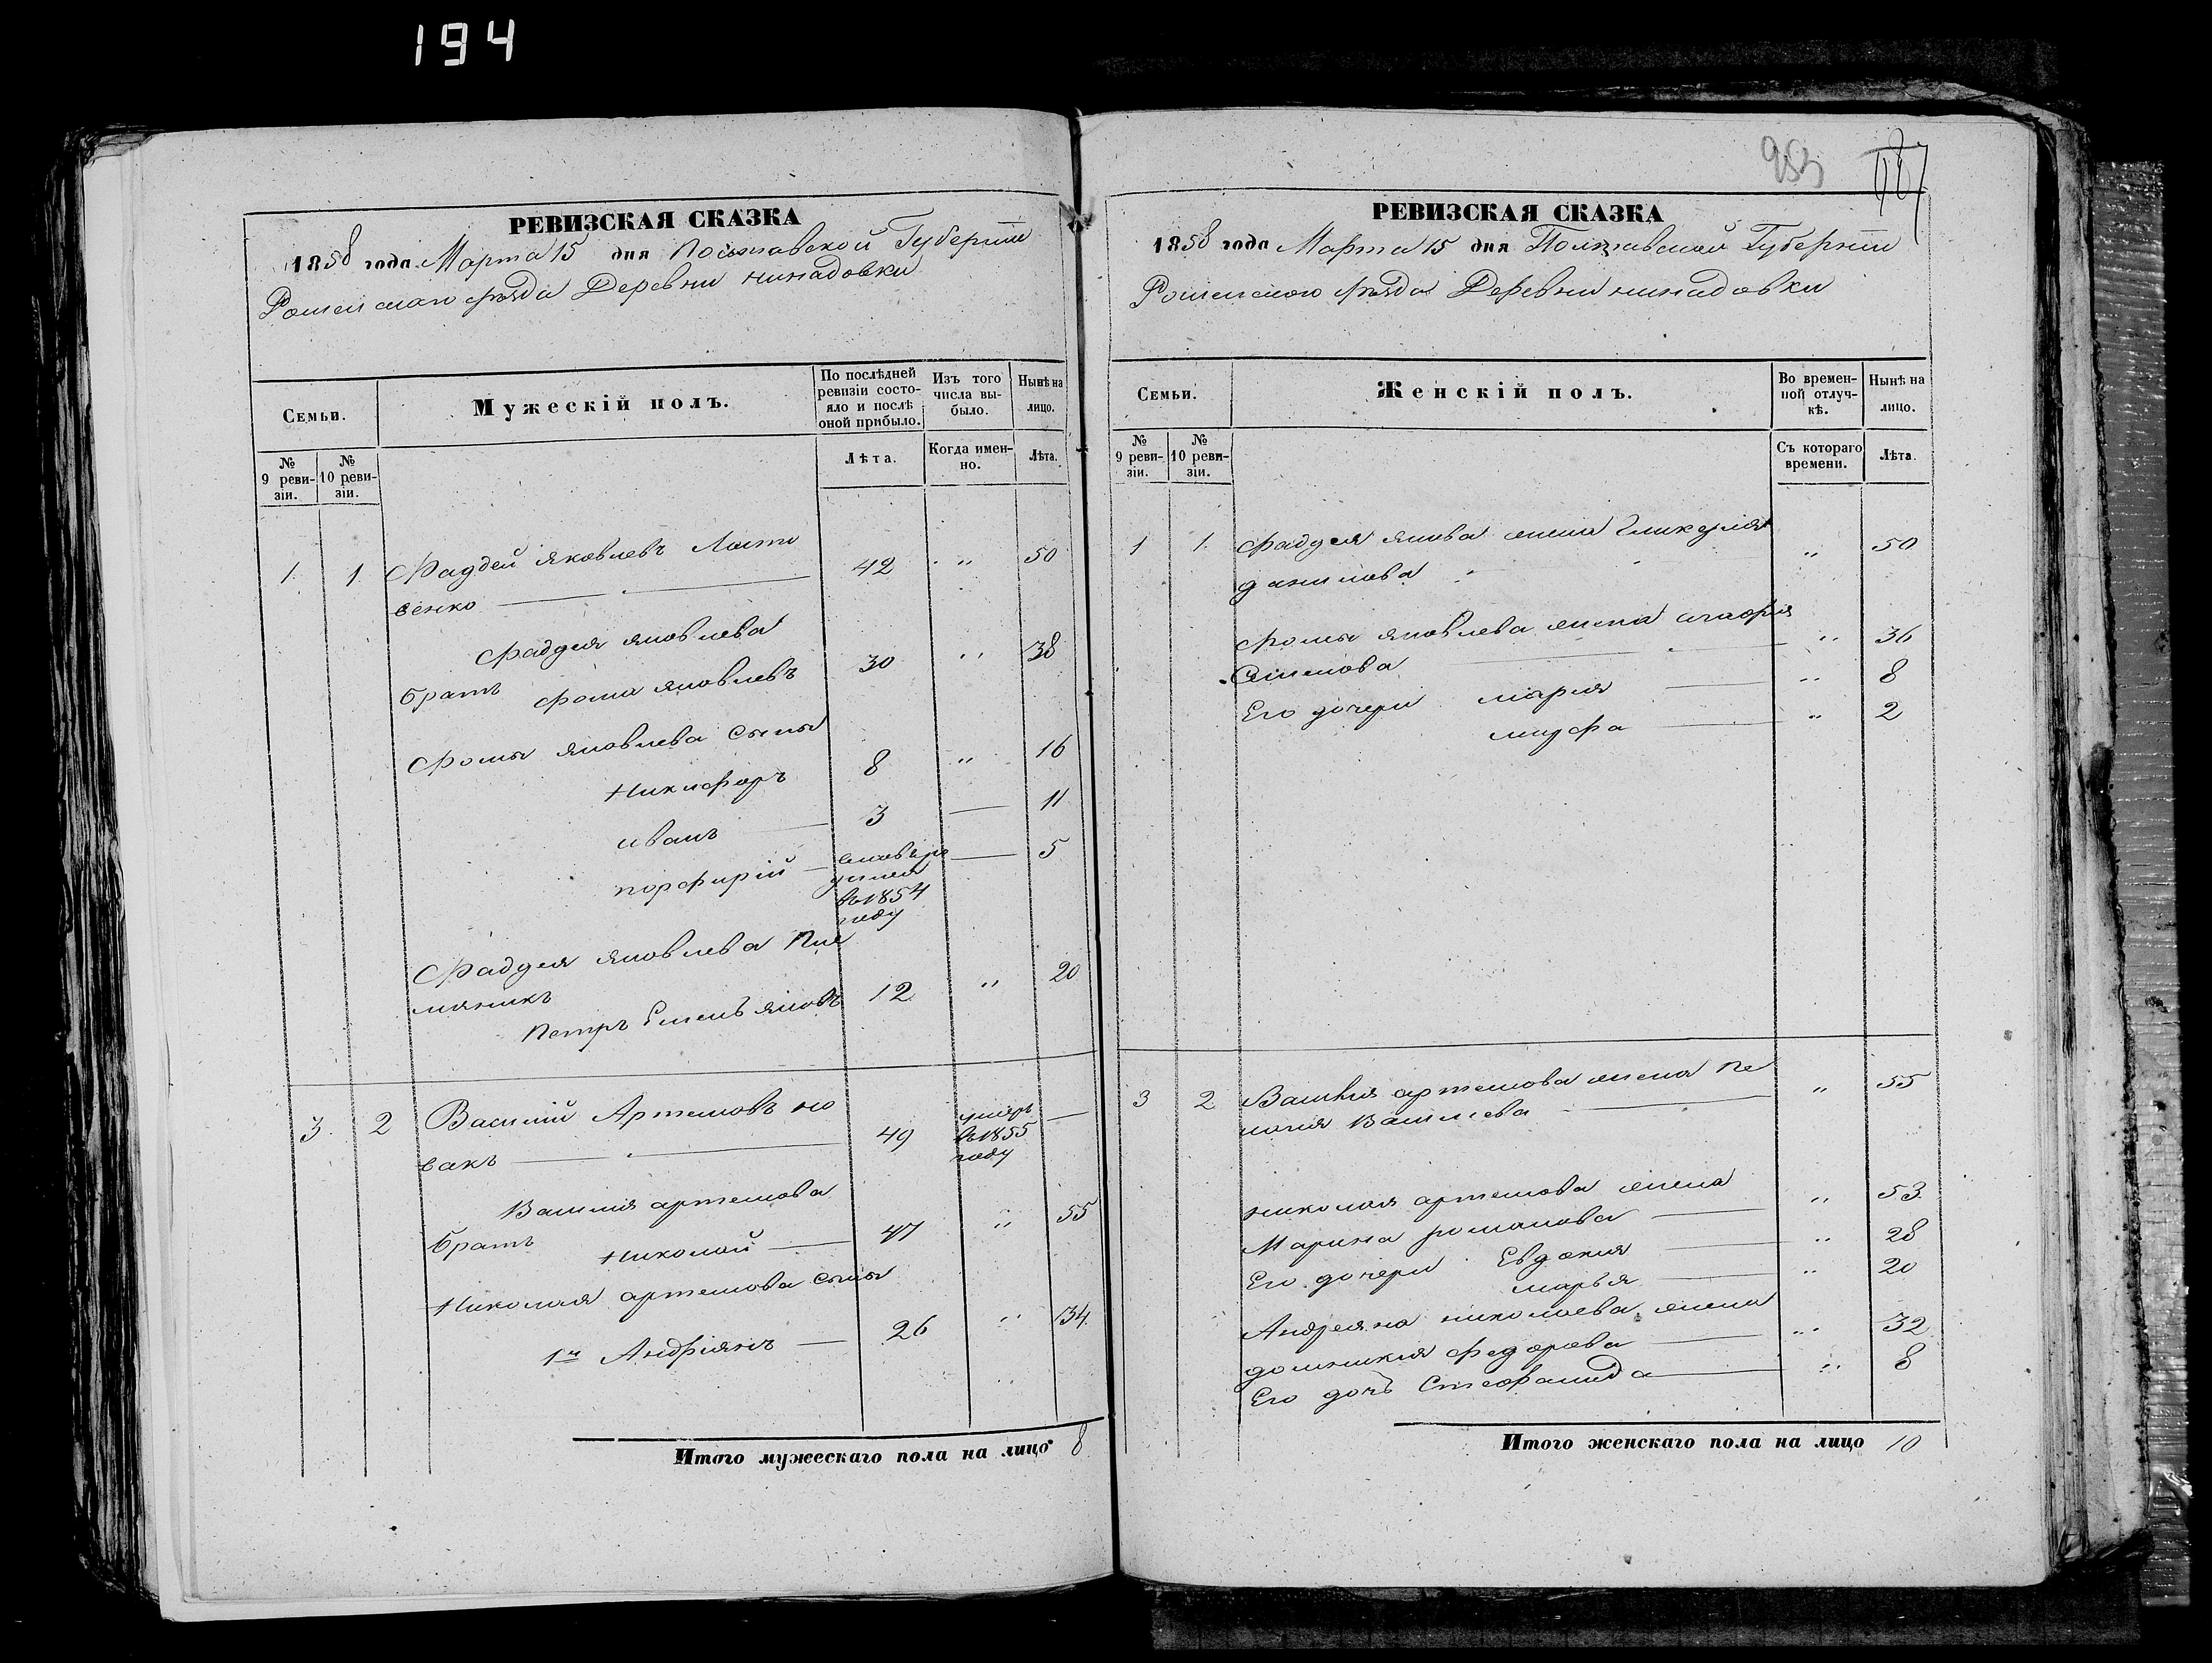 194
РЕВИЗСКАЯ СКАЗКА
1858 года Марта 15 дня Полтавской Губерніи
Роменскаго уѣзда Деревни
Семьи.
Мужескій полъ.
По послѣдней ревизіи состояло и послѣ оной прибыло.
Изъ того числа выбыло.
Нынѣ на лицо.
№ 9 ревизіи.
№ 10 ревизіи.
Лѣта.
Когда именно.
Лѣта.
1. 1 Фаддей Яковлевъ 42 " 50
венко
Фаддея яковлева
братъ фома яковлевъ 30 " 38
Фомы яковлева сыны
Никифоръ 8 " 16
иванъ — 3 — 11
порфирій — — 5
въ 1854
году
Фаддея яковлева пле
мяникъ
Петръ Емельяновъ 12 " 20
3. 2 Василій Артемовъ но
вакъ — 49 умеръ —
въ 1855
году
Василія артемова
братъ Николай — 47 " 55
Николая артемова сыны
1й Андріянъ — 26 " 34.
Итого мужескаго пола на лицо 8
253
187
РЕВИЗСКАЯ СКАЗКА
1858 года Марта 15 дня Полтавской Губерніи
Роменскаго уѣзда Деревни
Семьи.
Женскій полъ.
Во временной отлучкѣ.
Нынѣ на лицо.
№ 9 ревизіи.
№ 10 ревизіи.
Съ котораго времени.
Лѣта.
1 1. Фаддея жена Гликерія
данилова " 50
Фомы яковлева жена
" 36
Его дочери марія — " 8
— " 2
3 2 Василія артемова жена Пе
лагія Васильева — " 55
николая артемова жена
Марина романова — " 53.
Его дочери Евдокия — " 28
марья — " 20
Андрея на николаева жена
домникия федорова — " 32
Его дочь Стефанида — " 8
Итого женскаго пола на лицо 10